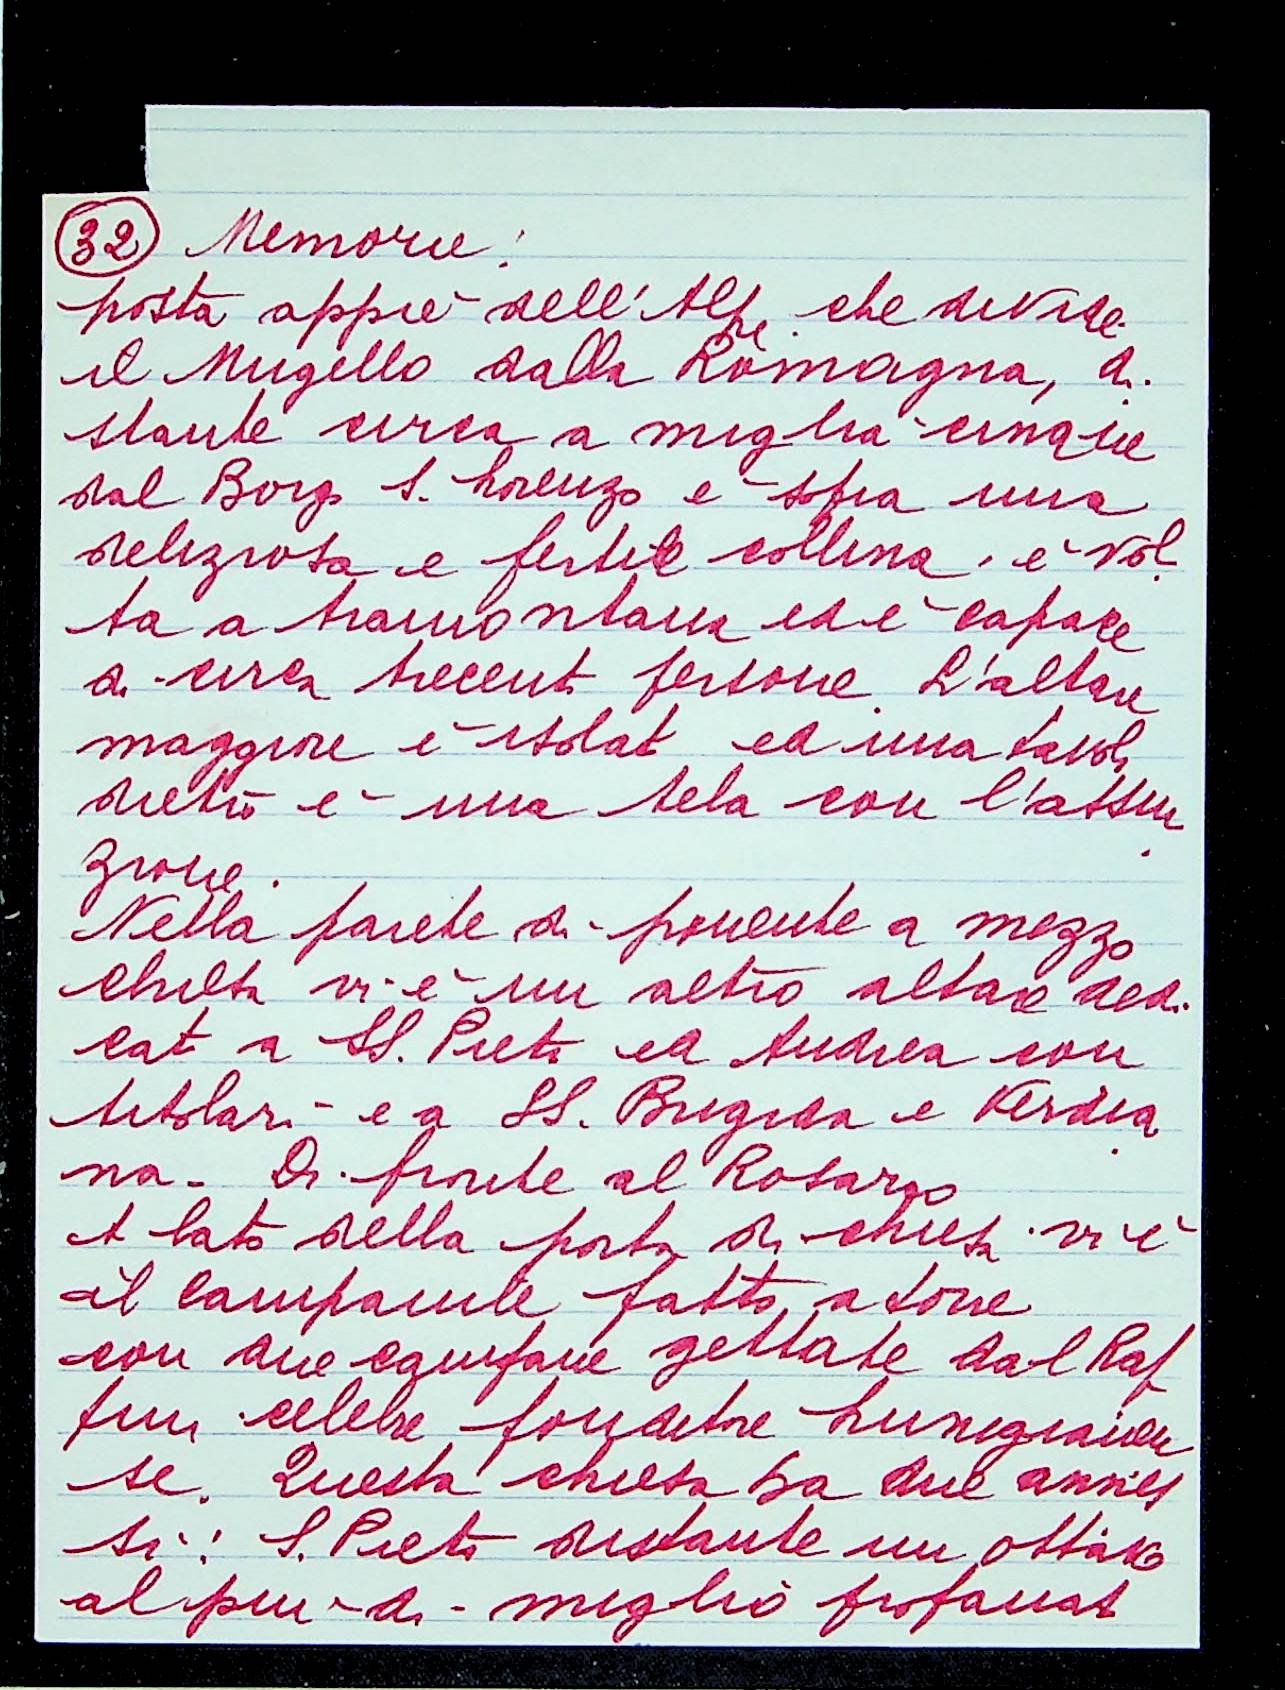 32 Memorie:
posta appiè dell'Alpe che divide
il Mugello dalla Romagna, di-
stante circa a miglia cinque
dal Borgo S. Lorenzo è sopra una
deliziosa e fertile collina, è vol-
ta a tramontana ed è capace
di circa trecento persone. L'altare
maggiore è isolato ed una tavola
dietro è una tela con l'assun-
zione.
Nella parete di ponente a mezzo
chiesa vi è un altro altare dedi-
cato a SS. Pietro ed Andrea con
titolari e a SS. Brigida e Verdia-
na. Di fronte al Rosario
A lato della porta di chiesa vi è
il campanile fatto a torre
con due campane gettate dal Raf-
fini celebre fonditore lunigianen
se. Questa chiesa ha due annes
si: S. Pietro distante un ottavo
al più di miglio profanato